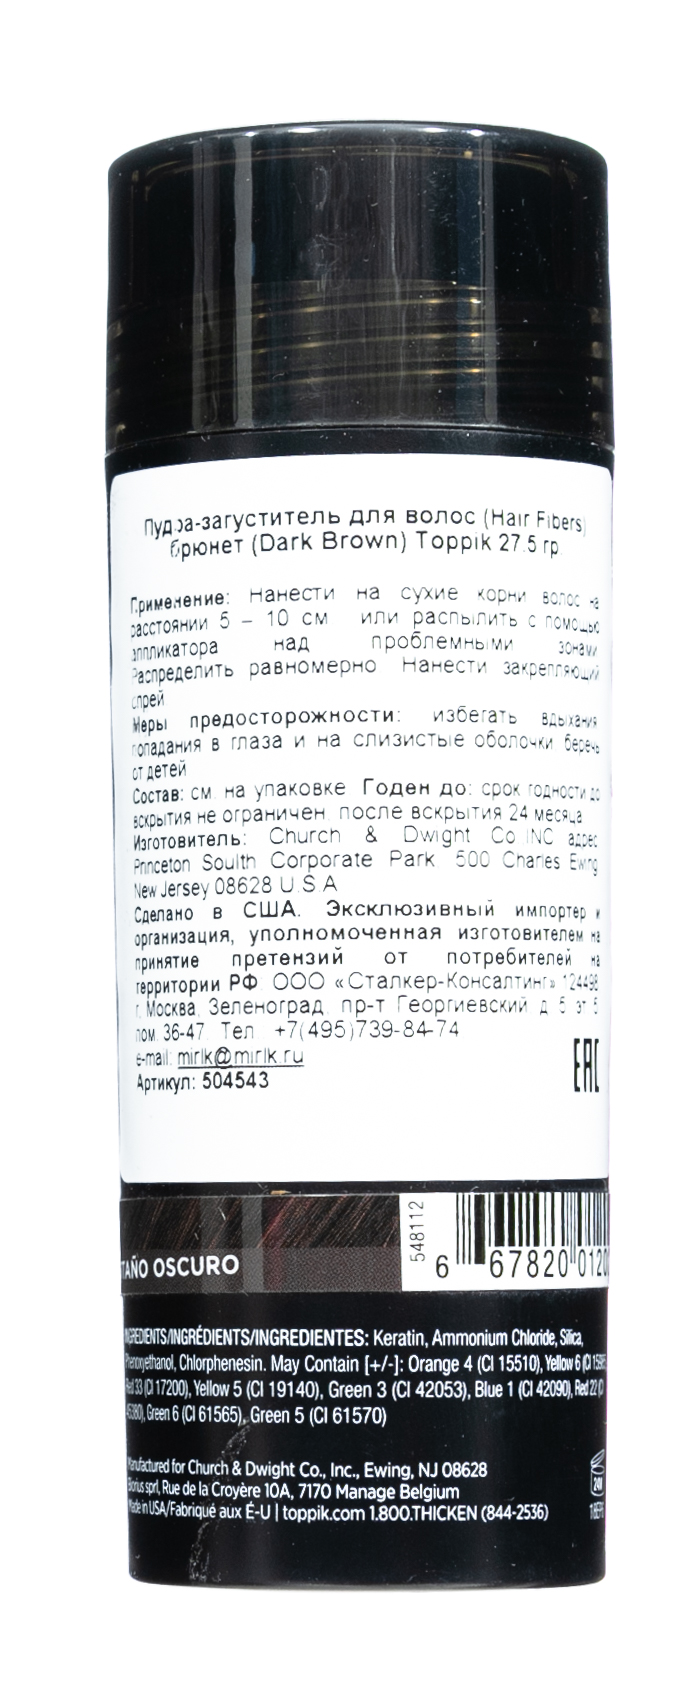 Пудра-загуститель для волос (Hair Fibers)
брюнет (Dark Brown) Toppik 27.5 гр.
Применение: Нанести на сухие корни волос на
расстоянии 5 – 10 см или распылить с помощью
аппликатора над проблемными зонами
Распределить равномерно Нанести закрепляющий
спрей
Меры предосторожности: избегать вдыхания,
попадания в глаза и на слизистые оболочки беречь
от детей
Состав: см. на упаковке Годен до: срок годности до
вскрытия не ограничен, после вскрытия 24 месяца
Изготовитель: Church & Dwight Co INC адрес
Princeton South Corporate Park 500 Charles Ewing
New Jersey 08628 U.S.A
Сделано в США. Эксклюзивный импортер и
организация, уполномоченная изготовителем на
принятие претензий от потребителей на
территории РФ: ООО «Сталкер-Консалтинг» 124498
г. Москва, Зеленоград, пр-т Георгиевский д. 5 эт 5
пом. 36-47 Тел. +7(495)739-84-74
e-mail: mirlk@mirlk.ru
Артикул: 504543
EAC
548112
6 67820 0120
TAÑO OSCURO
INGREDIENTS/INGRÉDIENTS/INGREDIENTES: Keratin, Ammonium Chloride, Silica,
Phenoxyethanol, Chlorphenesin. May Contain [+/-]: Orange 4 (CI 15510), Yellow 6 (CI
Red 33 (CI 17200), Yellow 5 (CI 19140), Green 3 (CI 42053), Blue 1 (CI 42090), Red 22 (CI
45380), Green 6 (CI 61565), Green 5 (CI 61570)
Manufactured for Church & Dwight Co., Inc., Ewing, NJ 08628
sprl, Rue de la Croyère 10A, 7170 Manage Belgium
Made in USA/Fabriqué aux É-U | toppik.com 1.800.THICKEN (844-2536)
24M